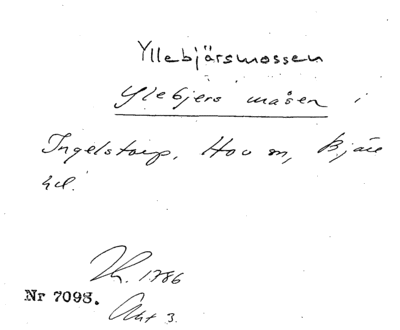 Yllebjärsmossen
Ylebjers måsen i
Ingelstorp, Hov sn, Bjäre
hd.
Th. 1786
Nr 7098.
Akt 3.